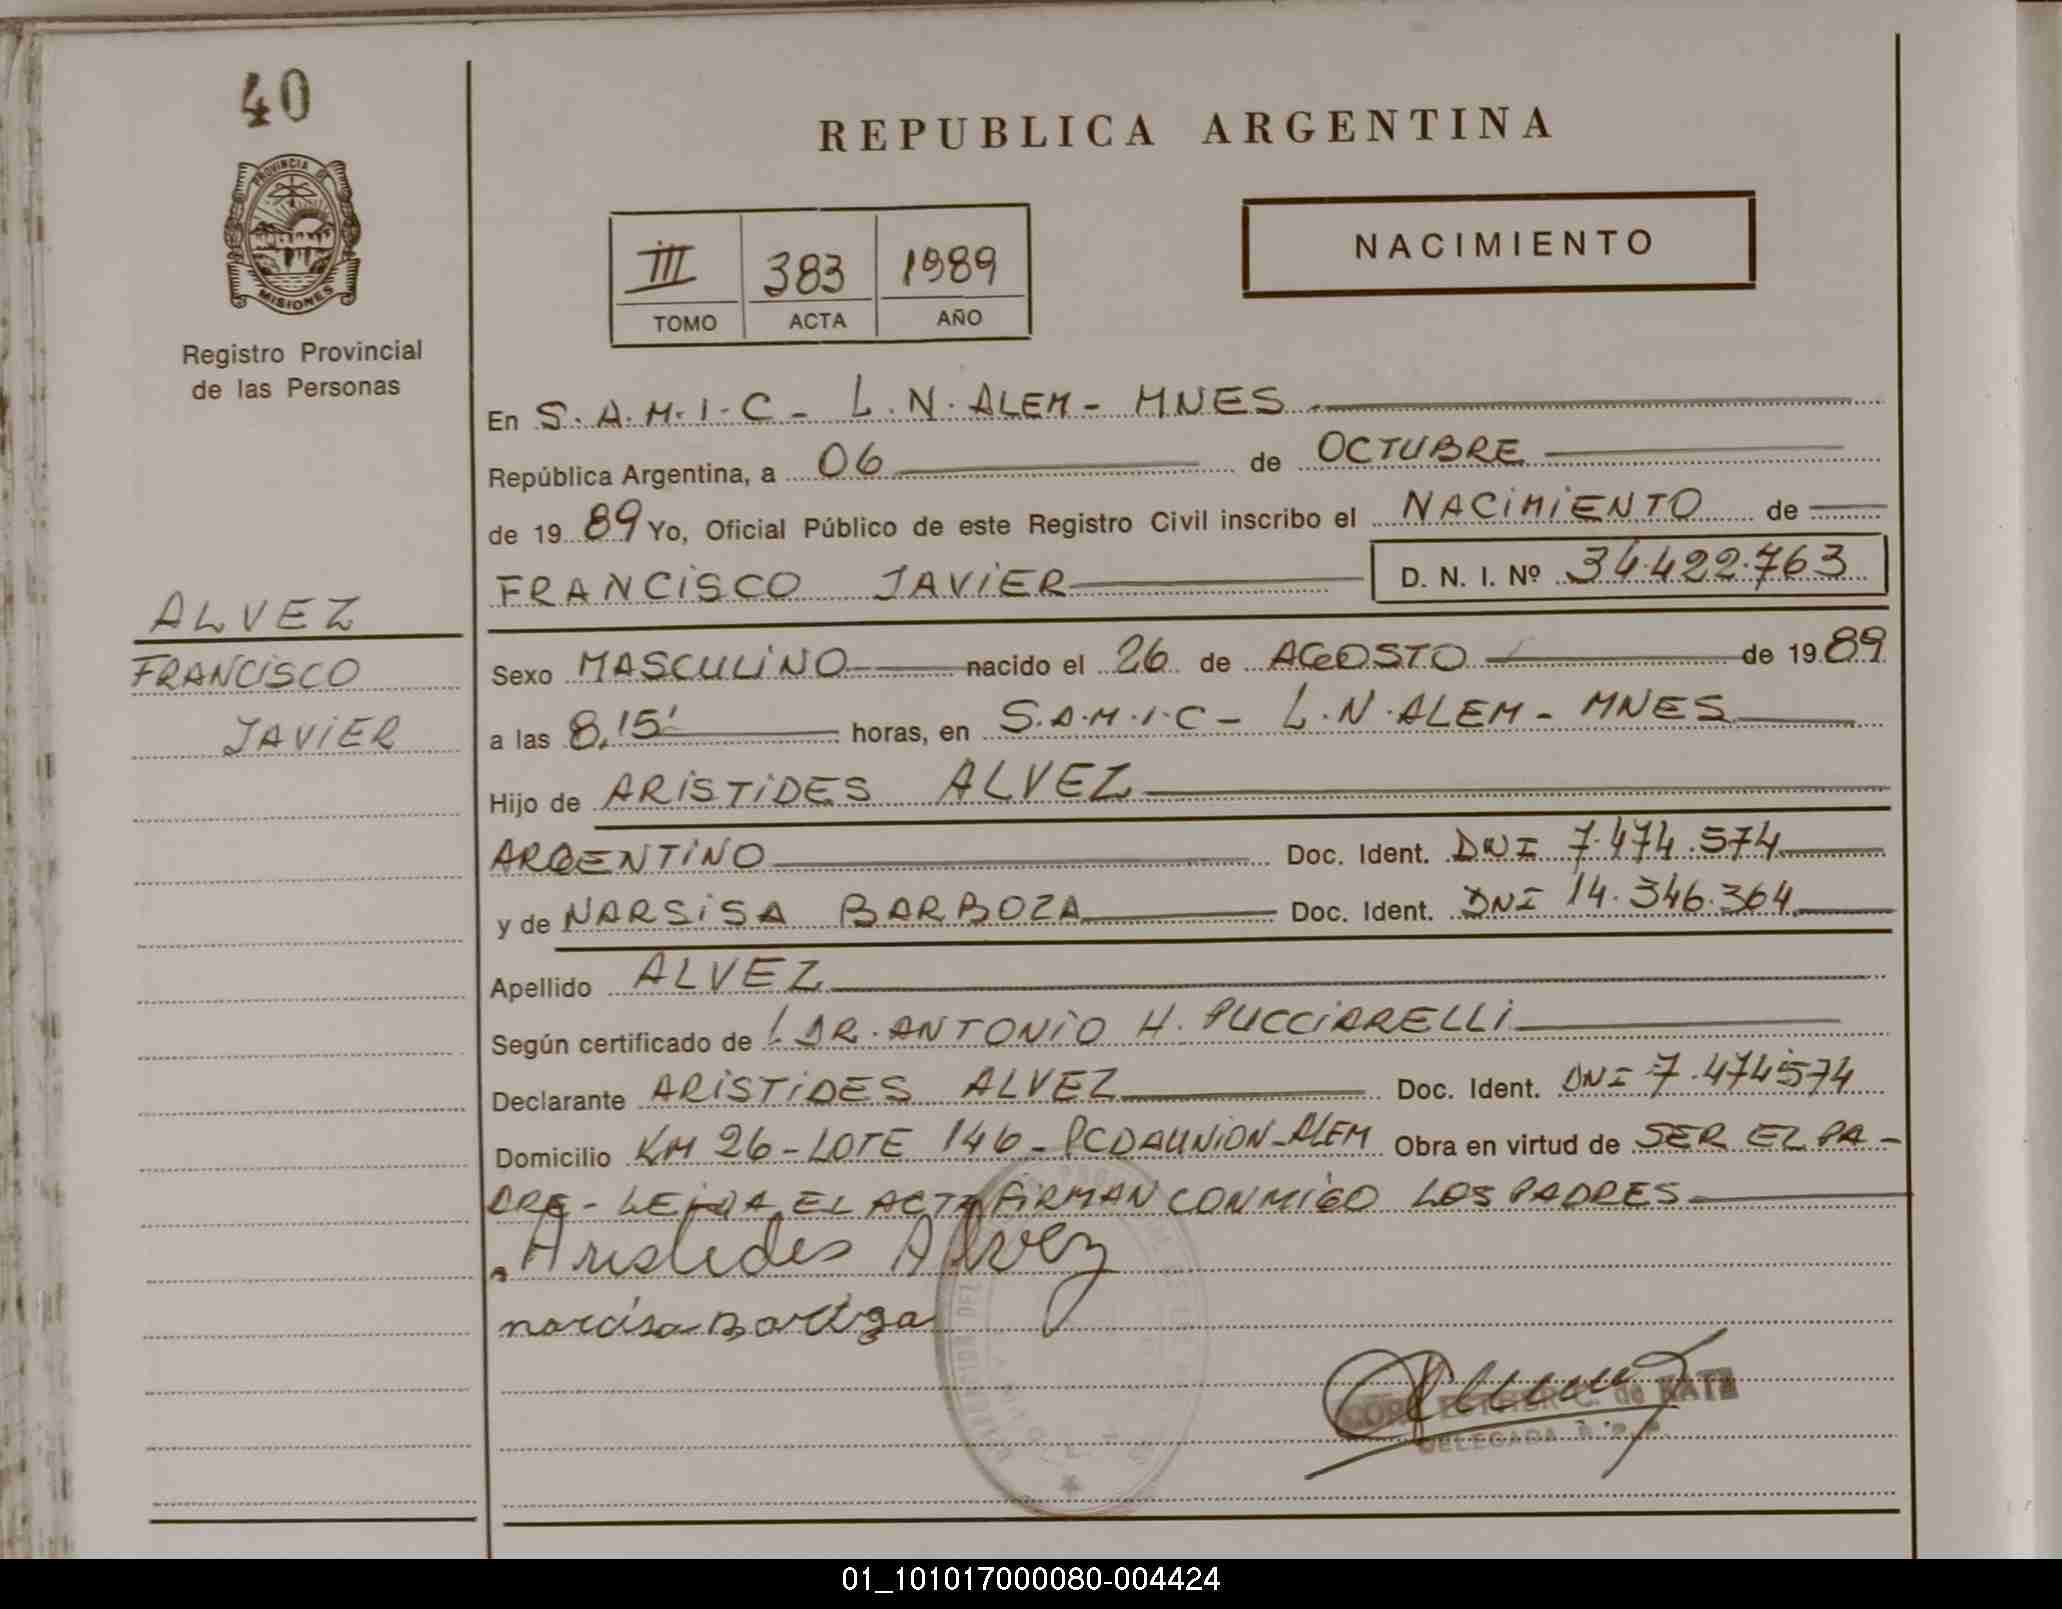 40
PROVINCIA DE
MISIONES
Registro Provincial
de las Personas
ALVEZ
FRANCISCO
JAVIER
REPUBLICA ARGENTINA
III 383 1989
TOMO ACTA AÑO
NACIMIENTO
En S.A.M.I.C - L.N. ALEM - MNES
República Argentina, a 06 de OCTUBRE
de 1989 Yo, Oficial Público de este Registro Civil inscribo el NACIMIENTO de
FRANCISCO JAVIER D. N. I. Nº 34.422.763
Sexo MASCULINO nacido el 26 de AGOSTO de 1989
a las 8,15' horas, en S.A.M.I.C - L.N. ALEM - MNES
Hijo de ARISTIDES ALVEZ
ARGENTINO Doc. Ident. DNI 7.474.574
y de NARSISA BARBOZA Doc. Ident. DNI 14.346.364
Apellido ALVEZ
Según certificado de DR. ANTONIO H. PUCCIARELLI
Declarante ARISTIDES ALVEZ Doc. Ident. DNI 7.474574
Domicilio KM 26 - LOTE 146 - PCDAUNION - ALEM Obra en virtud de SER EL PA-
DRE - LEIDA EL ACTA FIRMAN CONMIGO LOS PADRES
Aristides Alvez
narcisa
de KATZ
DELEGADA
01_101017000080-004424